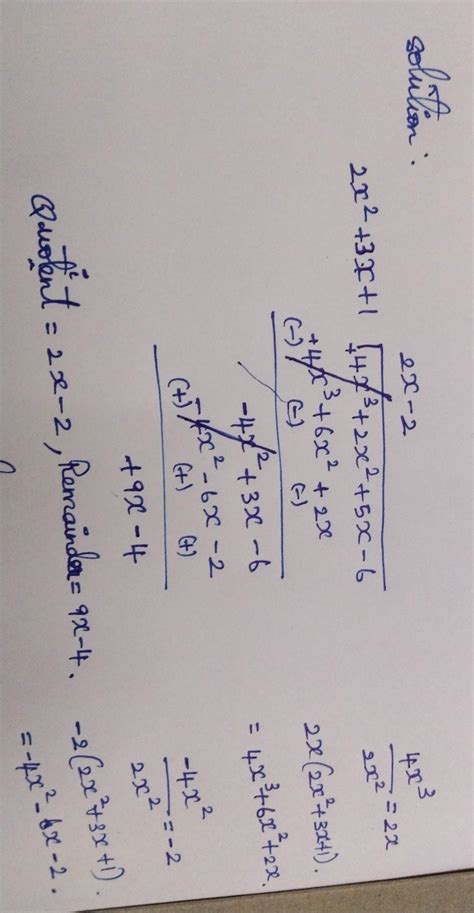 Solution :
2x - 2
2x² + 3x + 1 | +4x³ + 2x² + 5x - 6
+4x³ + 6x² + 2x
(-) (-) (-)
-4x² + 3x - 6
-4x² - 6x - 2
(+) (+) (+)
+9x - 4
Quotient = 2x - 2, Remainder = 9x - 4.
4x³/2x² = 2x
2x(2x² + 3x + 1).
= 4x³ + 6x² + 2x.
-4x²/2x² = -2
-2(2x² + 3x + 1).
= -4x² - 6x - 2.